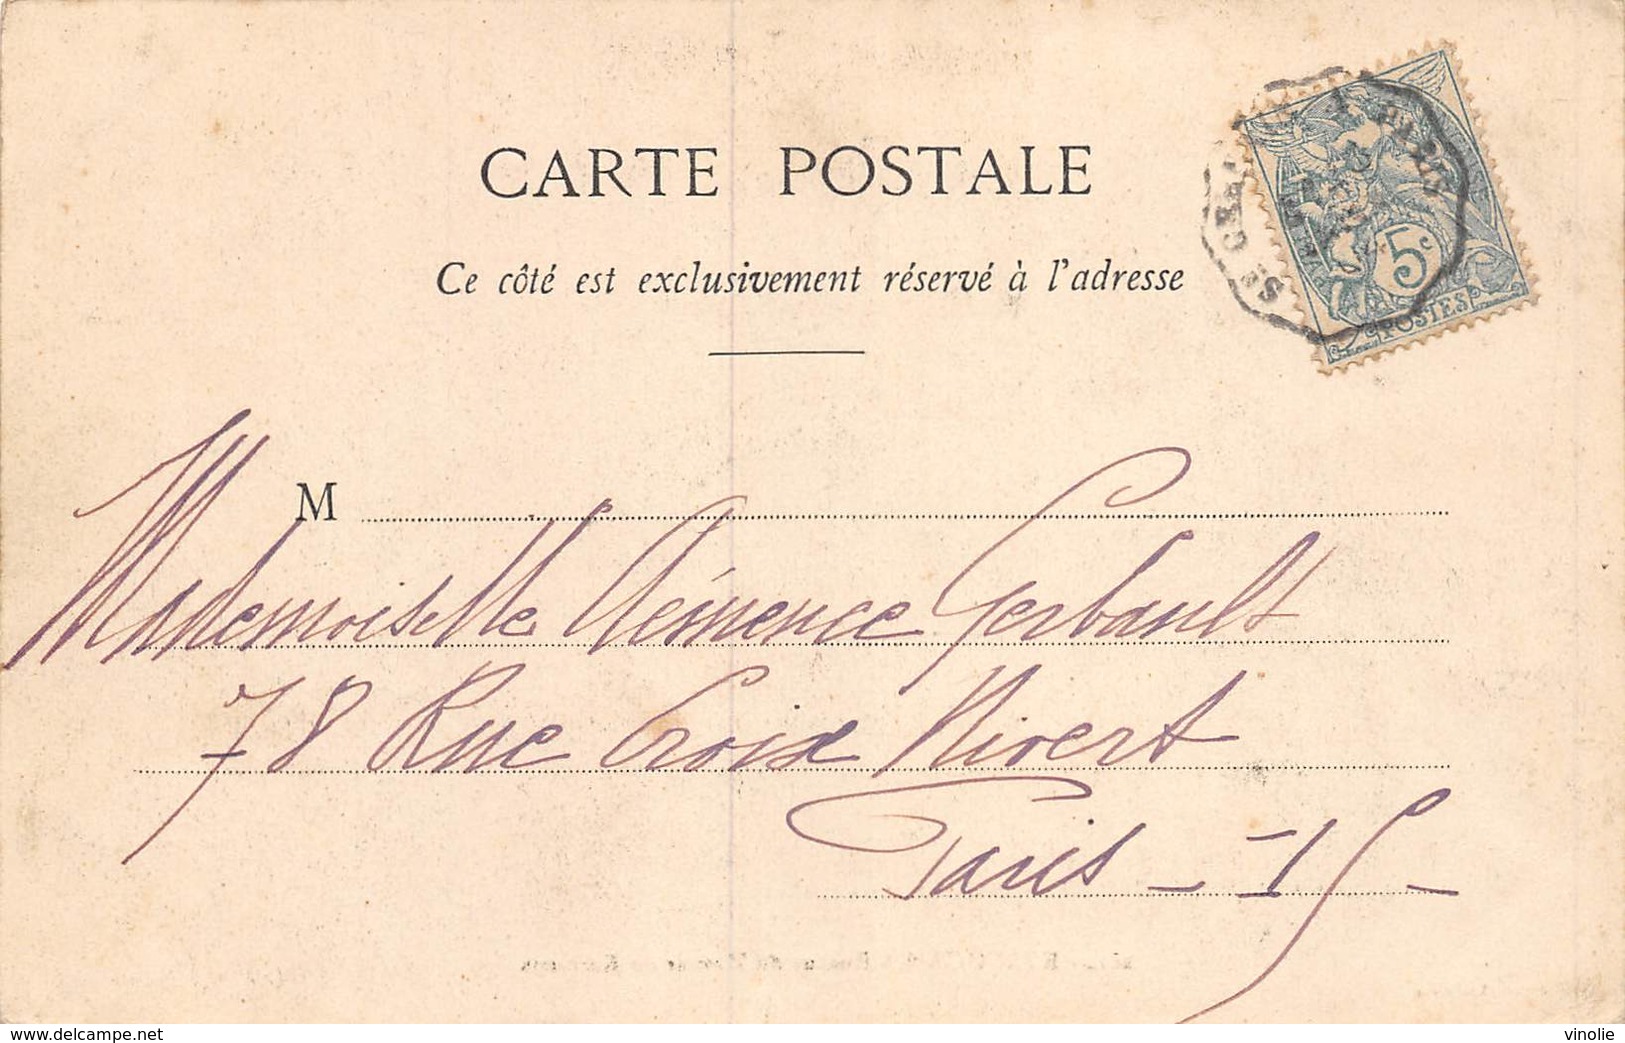 CARTE POSTALE
Ce côté est exclusivement réservé à l'adresse
5c
POSTES
PARIS
M
Mademoiselle Clémence Gerbault
78 Rue Croix Nivert
Paris - 15 -
www.delcampe.net
vinolie